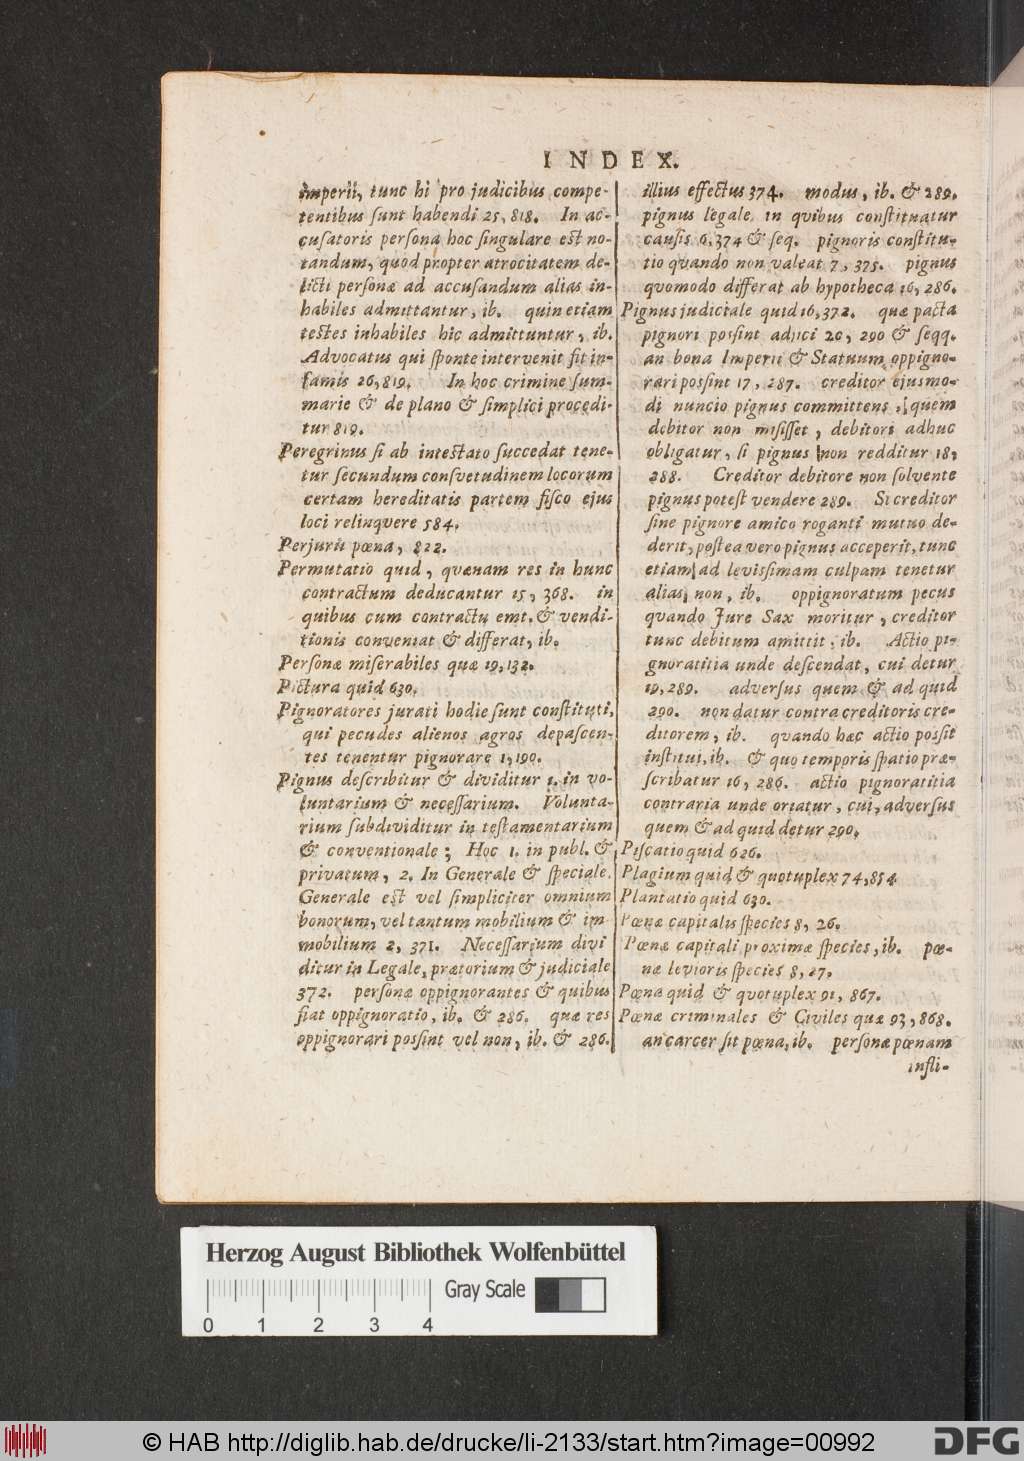 INDEX.
imperii, tunc hi pro judicibus compe-
tentibus ſunt habendi 25, 818. In ac-
cuſatoris perſona hoc ſingulare eſt no-
tandum, quod propter atrocitatem de-
licti perſonæ ad accuſandum alias in-
habiles admittantur, ib. quin etiam
teſtes inhabiles hic admittuntur, ib.
Advocatus qui ſponte intervenit fit in-
famis 26, 819. In hoc crimine ſum-
marie & de plano & ſimplici procedi-
tur 819.
Peregrinus ſi ab inteſtato ſuccedat tene-
tur ſecundum conſvetudinem locorum
certam hereditatis partem fiſco ejus
loci relinqvere 584.
Perjurii pœna, 822.
Permutatio quid, qvænam res in hunc
contractum deducantur 15, 368. in
quibus cum contractu emt. & vendi-
tionis conveniat & differat, ib.
Perſonæ miſerabiles quæ 19, 132.
Pictura quid 630.
Pignoratores jurati hodie ſunt conſtituti,
qui pecudes alienos agros depaſcen-
tes tenentur pignorare 1, 190.
Pignus deſcribitur & dividitur 1. in vo-
luntarium & neceſſarium. Volunta-
rium ſubdividitur in teſtamentarium
& conventionale; Hoc 1. in publ. &
privatum, 2. In Generale & ſpeciale.
Generale eſt vel ſimpliciter omnium
bonorum, vel tantum mobilium & im-
mobilium 2, 371. Neceſſarium divi
ditur in Legale, prætorium & judiciale
372. perſonæ oppignorantes & quibus
fiat oppignoratio, ib. & 286. quæ res
oppignorari poſſint vel non, ib. & 286.
illius effectus 374. modus, ib. & 289.
pignus legale in qvibus conſtituatur
cauſis 6, 374 & ſeq. pignoris conſtitu-
tio qvando non valeat 7, 375. pignus
qvomodo differat ab hypotheca 16, 286.
Pignus judiciale quid 16, 372. quæ pacta
pignori poſſint adjici 20, 290 & ſeqq.
an bona Imperii & Statuum oppigno-
rari poſſint 17, 287. creditor ejusmo-
di nuncio pignus committens, quem
debitor non miſiſſet, debitori adhuc
obligatur, ſi pignus non redditur 18,
288. Creditor debitore non ſolvente
pignus poteſt vendere 289. Si creditor
ſine pignore amico roganti mutuo de-
derit, poſtea vero pignus acceperit, tunc
etiam ad leviſſimam culpam tenetur
alias non, ib. oppignoratum pecus
qvando Jure Sax moritur, creditor
tunc debitum amittit, ib. Actio pi-
gnoratitia unde deſcendat, cui detur
19, 289. adverſus quem & ad quid
290. non datur contra creditoris cre-
ditorem, ib. quando hæc actio poſſit
inſtitui, ib. & quo temporis ſpatio præ-
ſcribatur 16, 286. actio pignoratitia
contraria unde oriatur, cui, adverſus
quem & ad quid detur 290.
Piſcatio quid 626.
Plagium quid & quotuplex 74, 854
Plantatio quid 630.
Pœnæ capitalis ſpecies 8, 26.
Pœnæ capitali proximæ ſpecies, ib. pœ-
næ levioris ſpecies 8, 27.
Pœna quid & qvotuplex 91, 867.
Pœnæ criminales & Civiles quæ 93, 868.
an carcer ſit pœna, ib. perſonæ pœnam
infli-
Herzog August Bibliothek Wolfenbüttel
Gray Scale
0 1 2 3 4
© HAB http://diglib.hab.de/drucke/li-2133/start.htm?image=00992
DFG